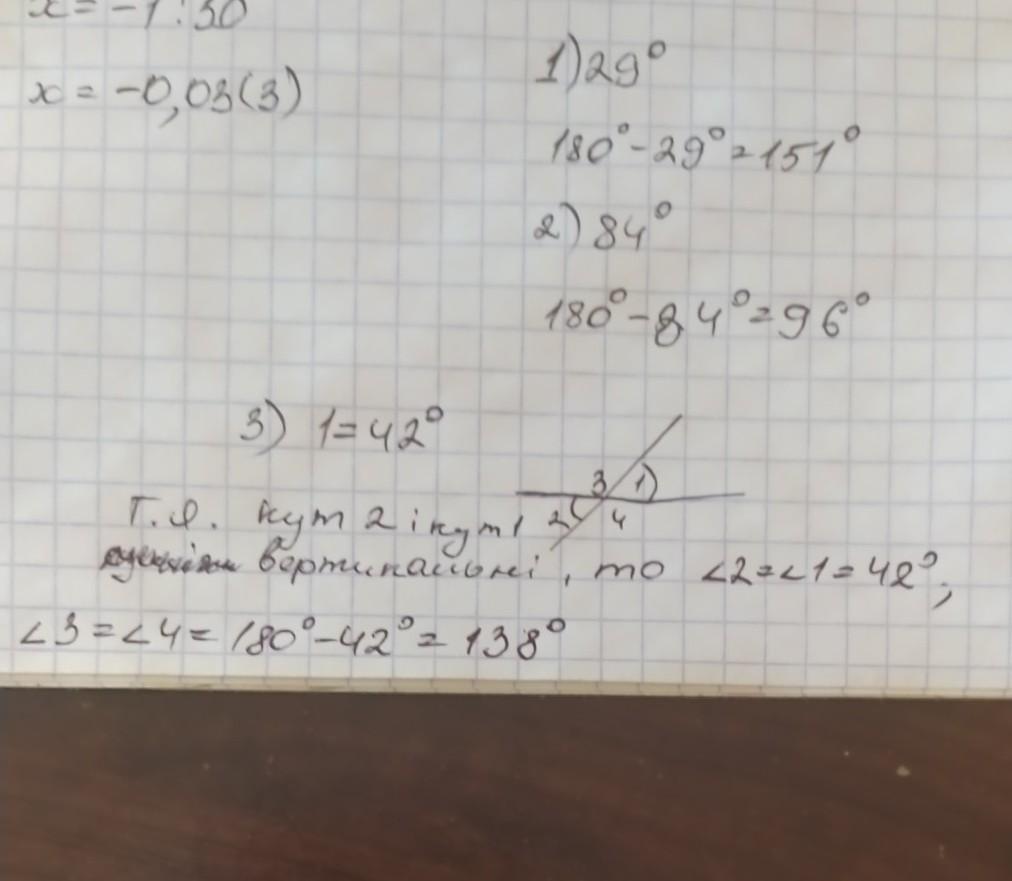 x = -1 : 30
x = -0,03(3)
1) 29°
180° - 29° = 151°
2) 84°
180° - 84° = 96°
3) 1 = 42°
3 1)
2 4
Т.я. кут 2 і кут 1
вертикальні, то ∠2 = ∠1 = 42°;
∠3 = ∠4 = 180° - 42° = 138°